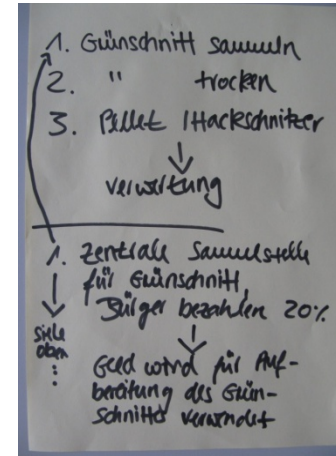 1. Grünschnitt sammeln
2. " trocken
3. Pellet / Hackschnitzer
↓
verwertung
1. Zentrale Sammelstelle
für Grünschnitt,
Bürger bezahlen 20%
↓
siehe
oben
⋮
Geld wird für Auf-
bereitung des Grün-
Schnitts verwendet